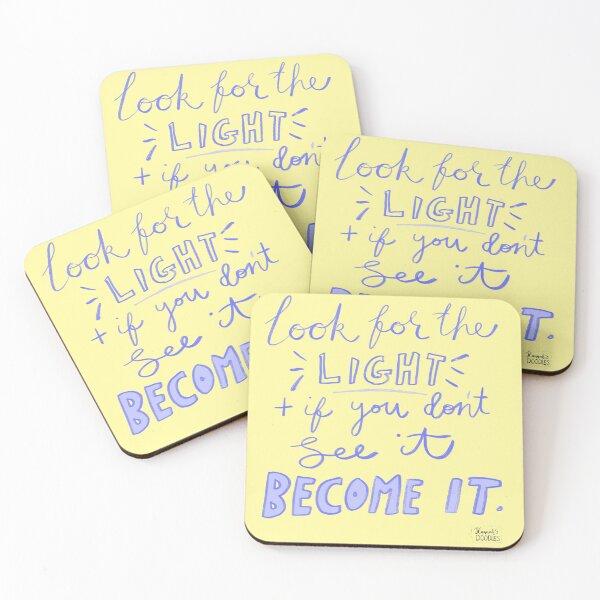 look for the
LIGHT
+ if you don't
it
look for the
LIGHT
+ if you don't
see it
T.
DOODLES
look for the
LIGHT
+ if you don't
see it
BECOME
look for the
LIGHT
+ if you don't
see it
BECOME IT.
DOODLES